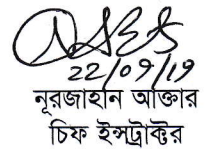 22/09/19
নূরজাহান আক্তার
চিফ ইন্সট্রাক্টর